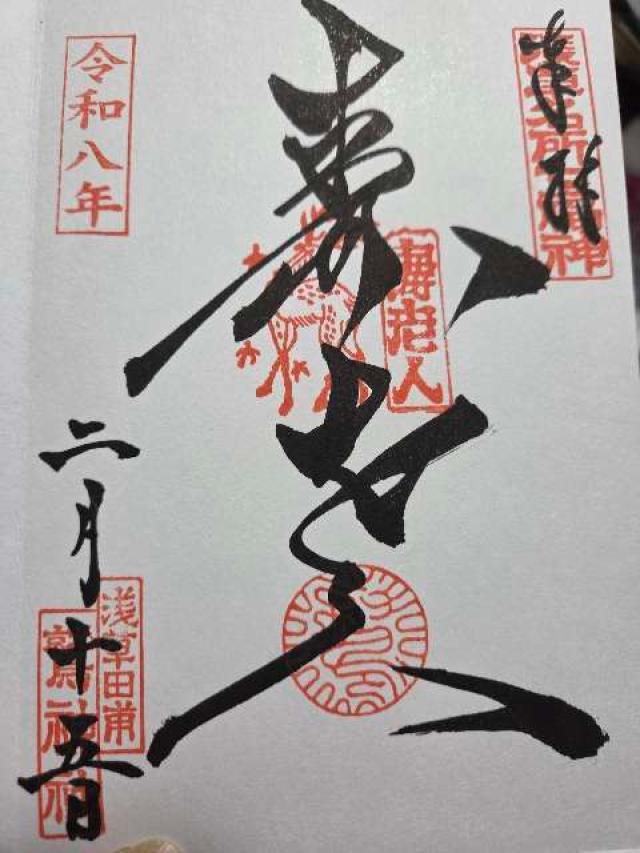 奉拝
浅草名所七福神
寿老人
壽老人
令和八年
二月十五日
浅草田甫
鷲神社